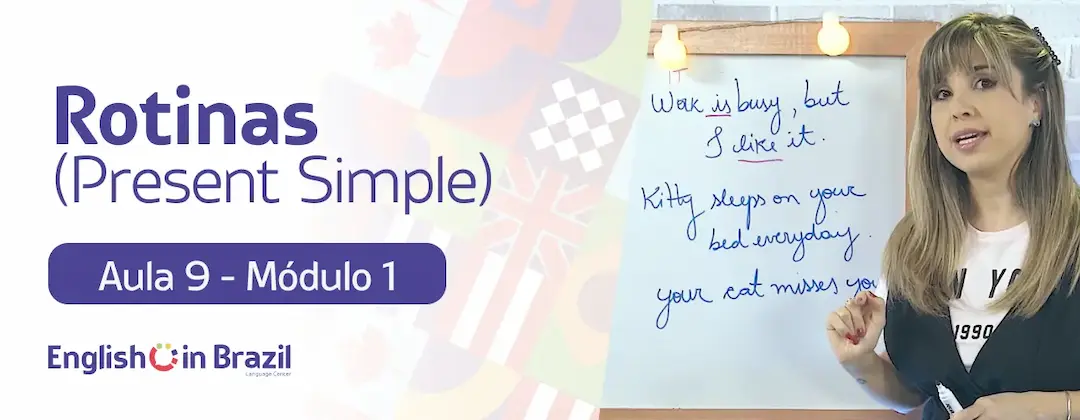 Rotinas
(Present Simple)
Aula 9 - Módulo 1
English in Brazil
Language Center
IT
Work is busy, but
I like it.
Kitty sleeps on your
bed everyday.
your cat misses you
N YO
1990